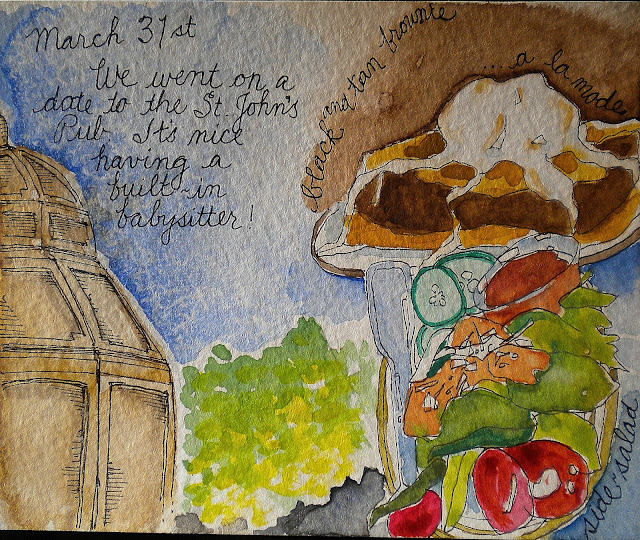 March 31st
We went on a
date to the St. John's
Pub It's nice
having a
built-in
babysitter!
black and tan brownie
....a la mode
side salad